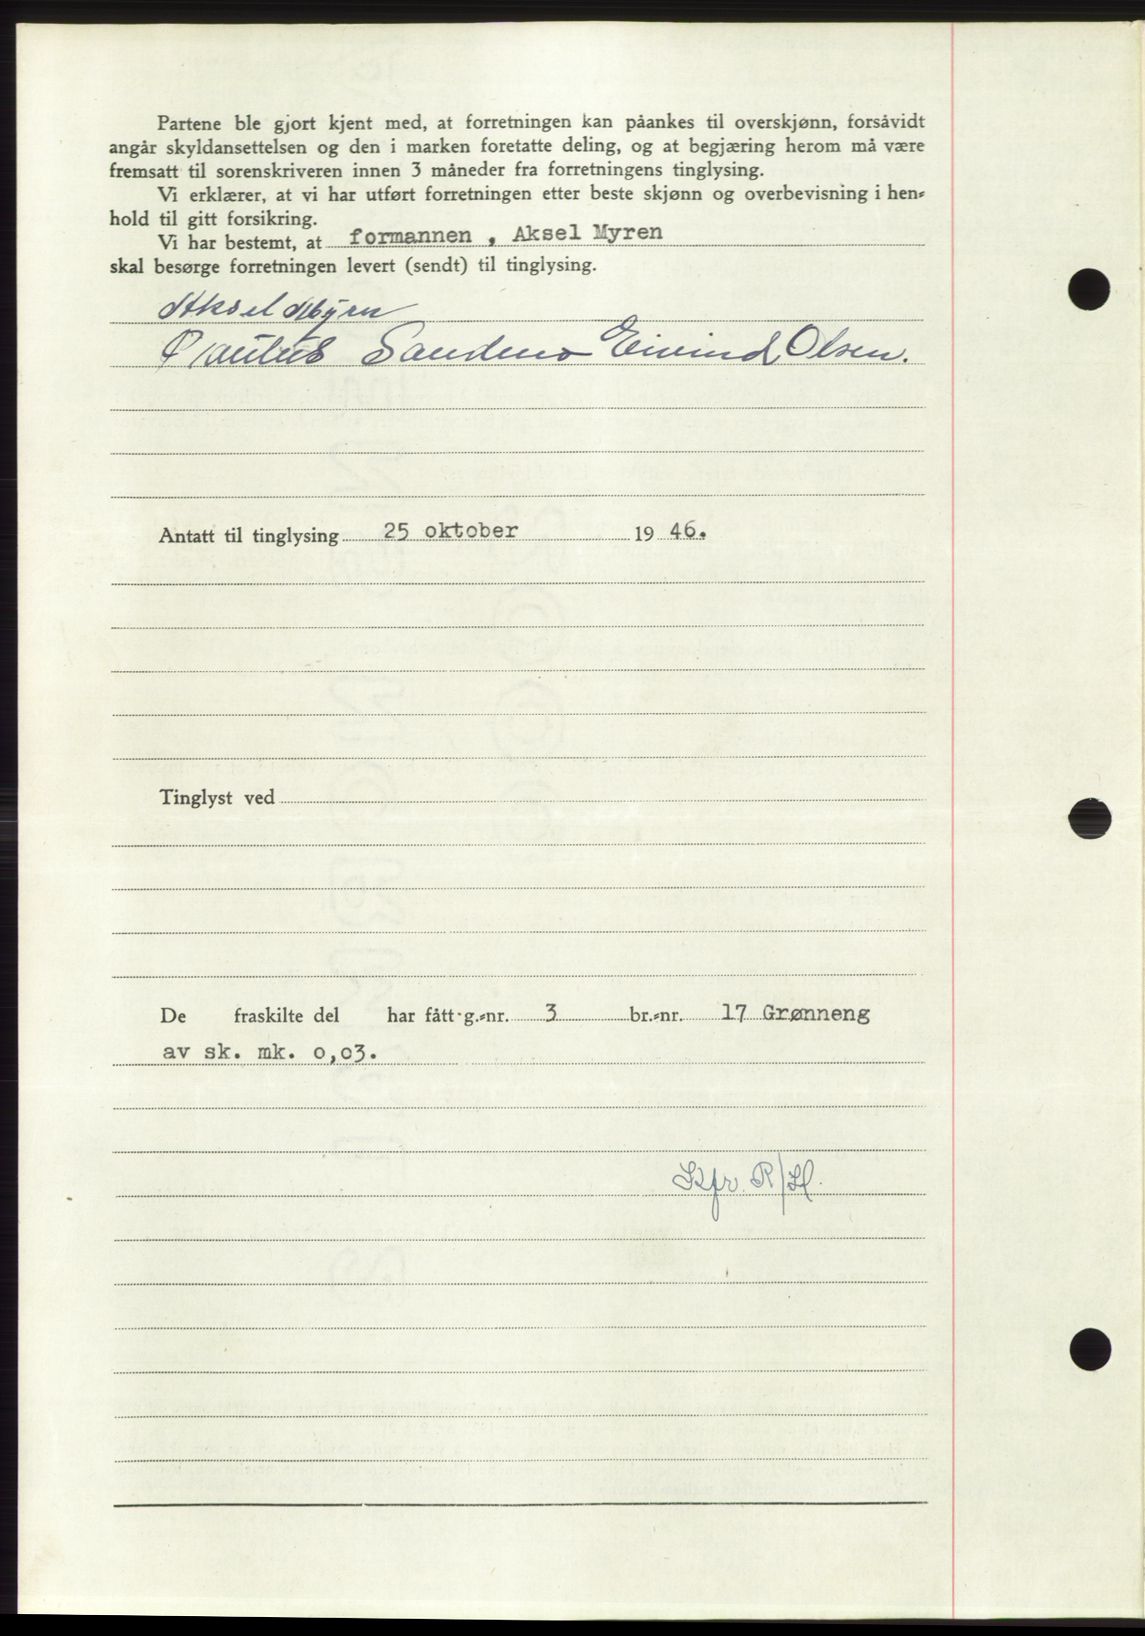 Partene ble gjort kjent med, at forretningen kan påankes til overskjønn, forsåvidt
angår skyldansettelsen og den i marken foretatte deling, og at begjæring herom må være
fremsatt til sorenskriveren innen 3 måneder fra forretningens tinglysing.
Vi erklærer, at vi har utført forretningen etter beste skjønn og overbevisning i hen-
hold til gitt forsikring.
Vi har bestemt, at formannen , Aksel Myren
skal besørge forretningen levert (sendt) til tinglysing.
Aksel Myren
Paulus Sandmo Eivind Olsen.
Antatt til tinglysing 25 oktober 19 46.
Tinglyst ved
De fraskilte del har fått g.-nr. 3 br.-nr. 17 Grønneng
av sk. mk. 0,03.
Kfr. R/H.